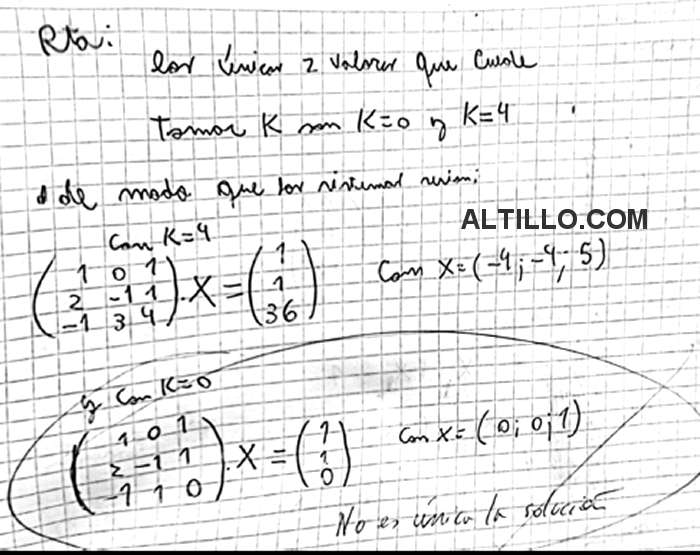 Rta:
los únicos 2 valores que puede
tomar K son K=0 y K=4
de modo que los sistemas serían:
ALTILLO.COM
con K=4
( 1 0 1
2 -1 1
-1 3 4 ) . X = ( 1
1
36 ) Con X=(-4; -4; 5)
y con K=0
( 1 0 1
2 -1 1
-1 1 0 ) . X = ( 1
1
0 ) con X=(0; 0; 1)
No es única la solución